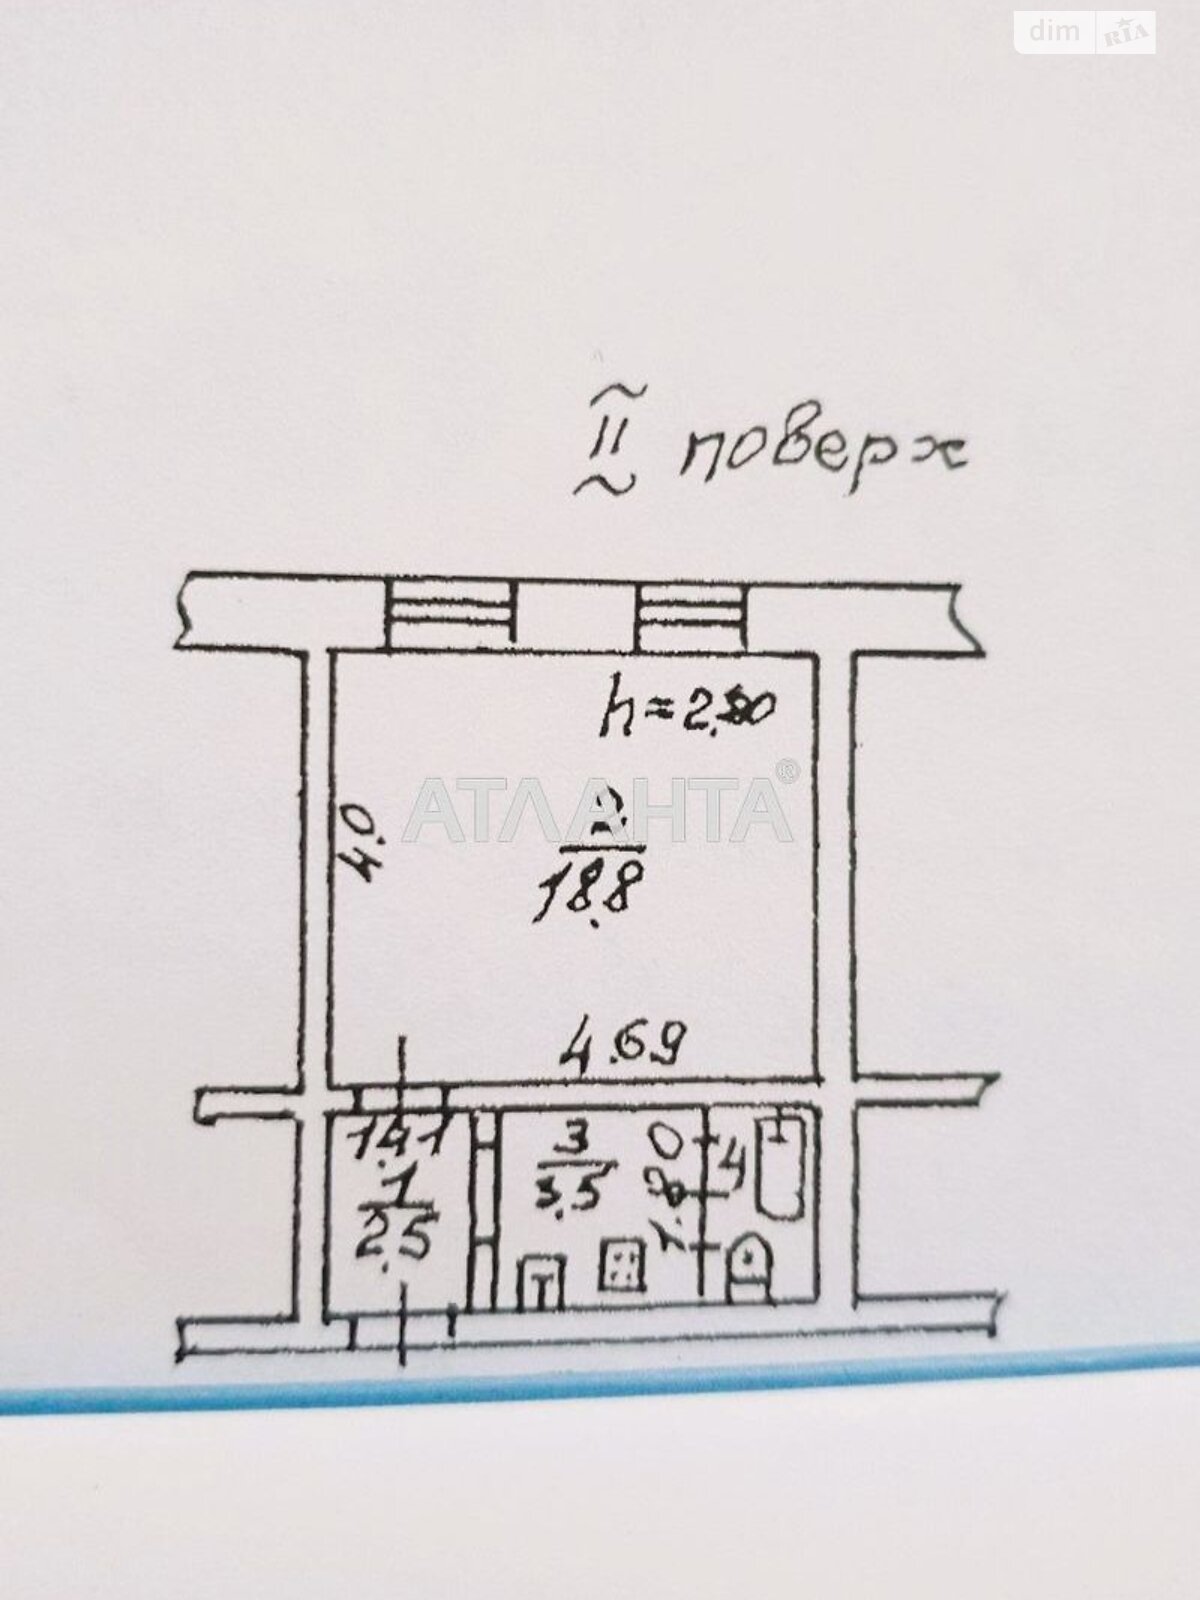 dim RIA
II поверх
h=2.80
АТЛАНТА®
2
18.8
4.0
4.69
1.41
1
2.5
3
3.5
1.80
4